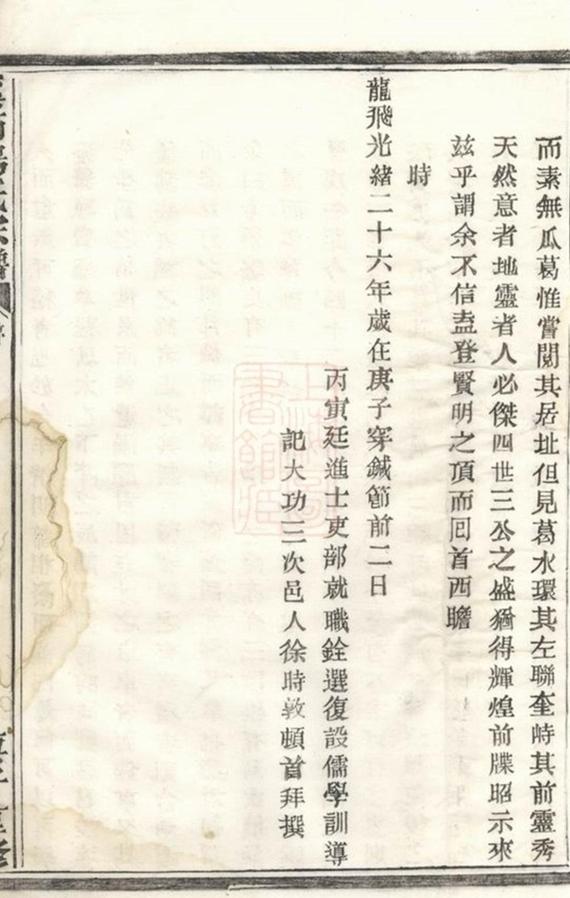 而素無瓜葛惟嘗閱其居址但見葛水環其左聯奎峙其前靈秀
天然意者地靈者人必傑四世三公之盛猶得輝煌前牒昭示來
兹乎謂余不信盍登賢明之頂而回首西瞻
時
龍飛光緒二十六年歲在庚子穿鍼節前二日
丙寅廷進士吏部就職銓選復設儒學訓導
記大功三次邑人徐時敦頓首拜撰